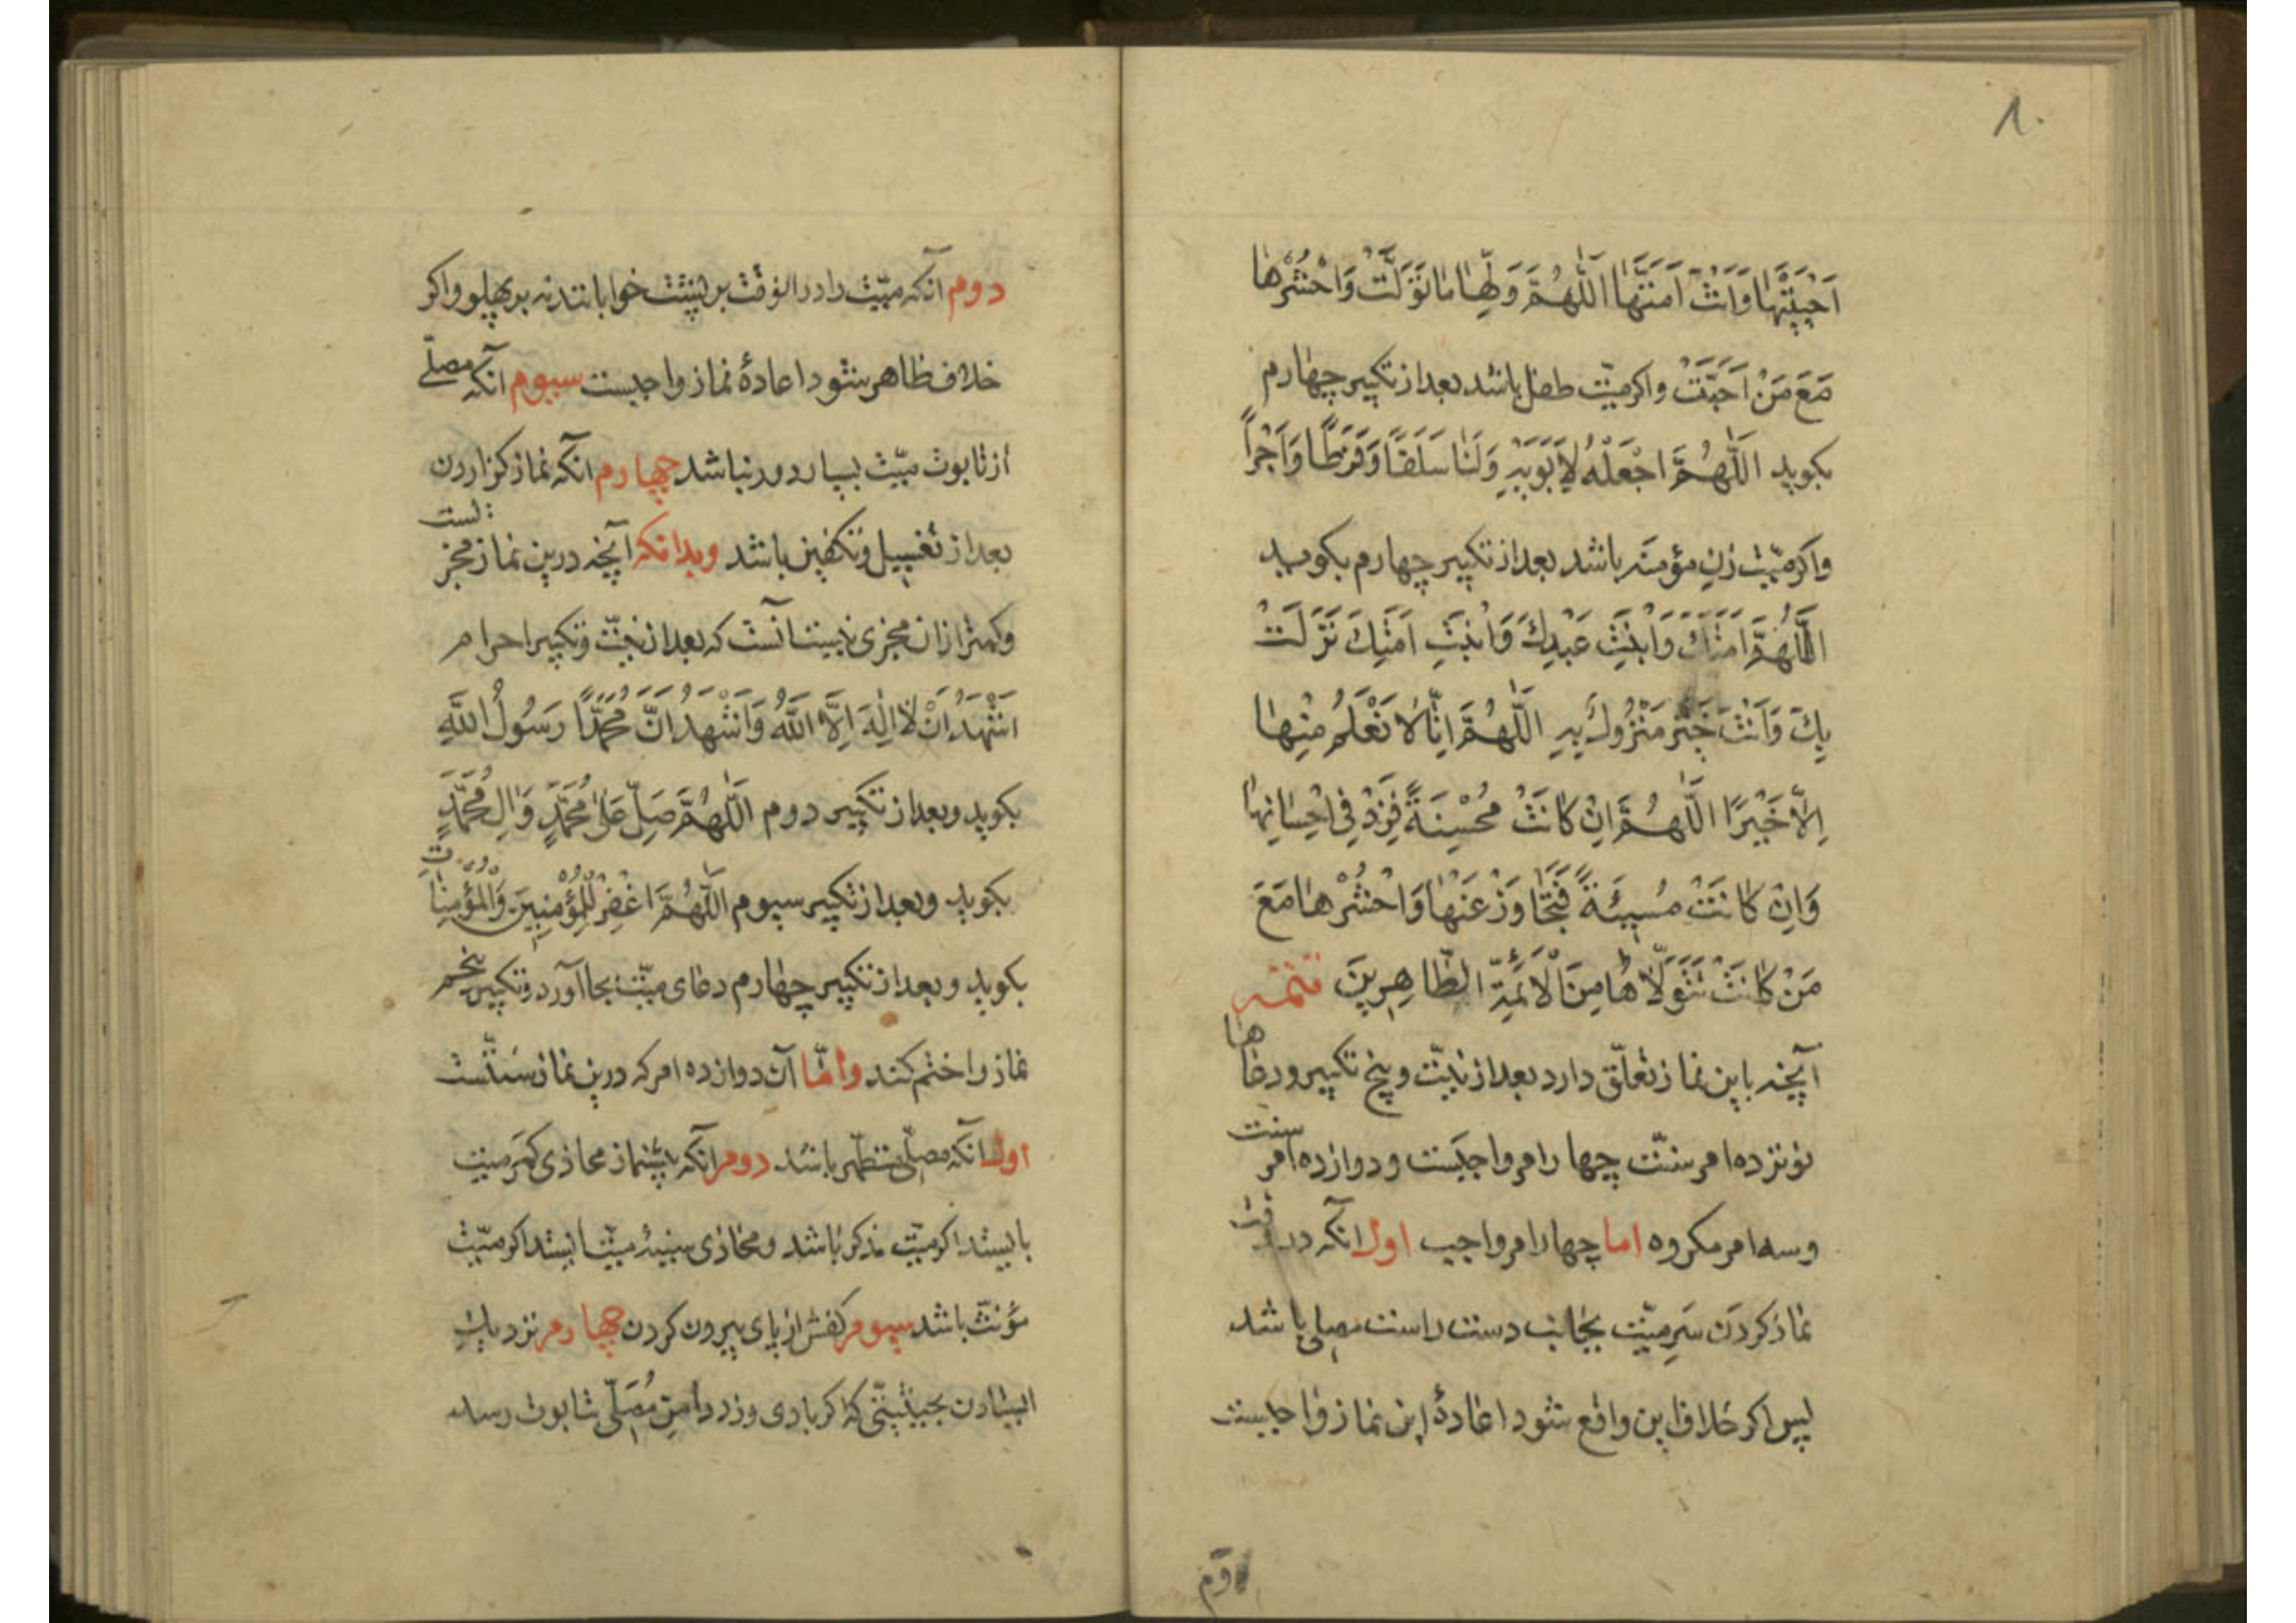 ۸۰
اَحْيَيْتَهَا وَاَنْتَ اَمَتَّهَا اَللّٰهُمَّ وَلِّهَا مَا تَوَلَّتْ وَاحْشُرْهَا
مَعَ مَنْ اَحَبَّتْ واکر میّت طفل باشد بعد از تکبیر چهارم
بکوید اَللّٰهُمَّ اجْعَلْهُ لِاَبَوَيْهِ وَلَنَا سَلَفًا وَفَرَطًا وَاَجْرًا
واکر میّت زن مؤمنه باشد بعد از تکبیر چهارم بکوید
اَللّٰهُمَّ اَمَتُكَ وَابْنَتُ عَبْدِكَ وَابْنَتِ اَمَتِكَ نَزَلَتْ
بِكَ وَاَنْتَ خَيْرُ مَنْزُولٍ بِهِ اَللّٰهُمَّ اِنَّا لَا نَعْلَمُ مِنْهَا
اِلَّا خَيْرًا اَللّٰهُمَّ اِنْ كَانَتْ مُحْسِنَةً فَزِدْ فِي اِحْسَانِهَا
وَاِنْ كَانَتْ مُسِيئَةً فَتَجَاوَزْ عَنْهَا وَاحْشُرْهَا مَعَ
مَنْ كَانَتْ تَتَوَلَّاهَا مِنَ الْاَئِمَّةِ الطَّاهِرِينَ تتمّه
آنچه باین نماز تعلّق دارد بعد از نیّت و پنج تکبیر ودعاها
نوزده امرست چهار امر واجبست ودوازده امر سنت
وسه امر مکروه اما چهار امر واجب اول آنکه در وقت
نماز کردن سَرِ میّت بجانب دست راست مصلی باشد
پس اکر خلاف این واقع شود اعادهٔ این نماز واجبست
دوم
دوم آنکه میّت را در انوقت بر پشت خوابانند نه بر پهلو واکر
خلاف ظاهر شود اعادهٔ نماز واجبست سیوم آنکه مصلّی
از تابوت میّت بسیار دور نباشد چهارم آنکه نماز کزاردن
بعد از تغسیل وتکفین باشد وبدانکه آنچه درین نماز مجزیست
وکمتر ازان مجزی نیست آنست که بعد از نیّت وتکبیر احرام
اَشْهَدُ اَنْ لَا اِلٰهَ اِلَّا اللّٰهُ وَاَشْهَدُ اَنَّ مُحَمَّدًا رَسُولُ اللّٰهِ
بکوید وبعد از تکبیر دوم اَللّٰهُمَّ صَلِّ عَلٰى مُحَمَّدٍ وَاٰلِ مُحَمَّدٍ
بکوید وبعد از تکبیر سیوم اَللّٰهُمَّ اغْفِرْ لِلْمُؤْمِنِينَ وَالْمُؤْمِنَاتِ
بکوید وبعد از تکبیر چهارم دعای میّت بجا آورد وتکبیر پنجم
نماز را ختم کند وامّا آن دوازده امر که درین نماز سنّتست
اول آنکه مصلّی متطهّر باشد دوم آنکه پیشنماز محاذی کمَر میّت
بایستد اکر میّت مذکر باشد ومحاذی سینهٔ میّت ایستد اکر میّت
مؤنّث باشد سیوم کفش از پای بیرون کردن چهارم نزدیك
ایستادن بحیثیّتی که اکر بادی وزد دامن مُصَلّی بتابوت رسد